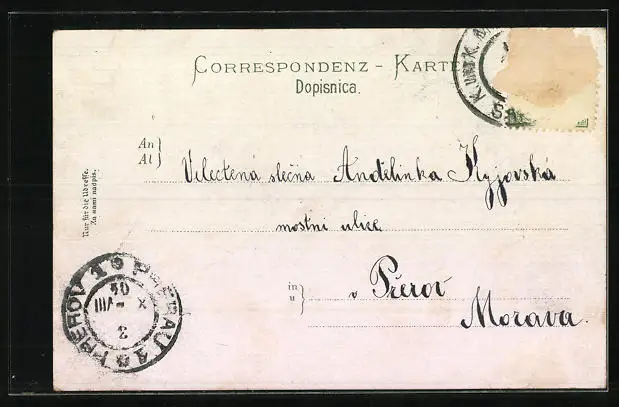 CORRESPONDENZ - KARTE
Dopisnica.
An
Al
Velectěná slečna Andělinka Kyjovská
mostní ulice
in
u
v Přerov
Morava.
Nur für die Adresse.
Za sami nadpis.
PRERAU 1
PŘEROV 1